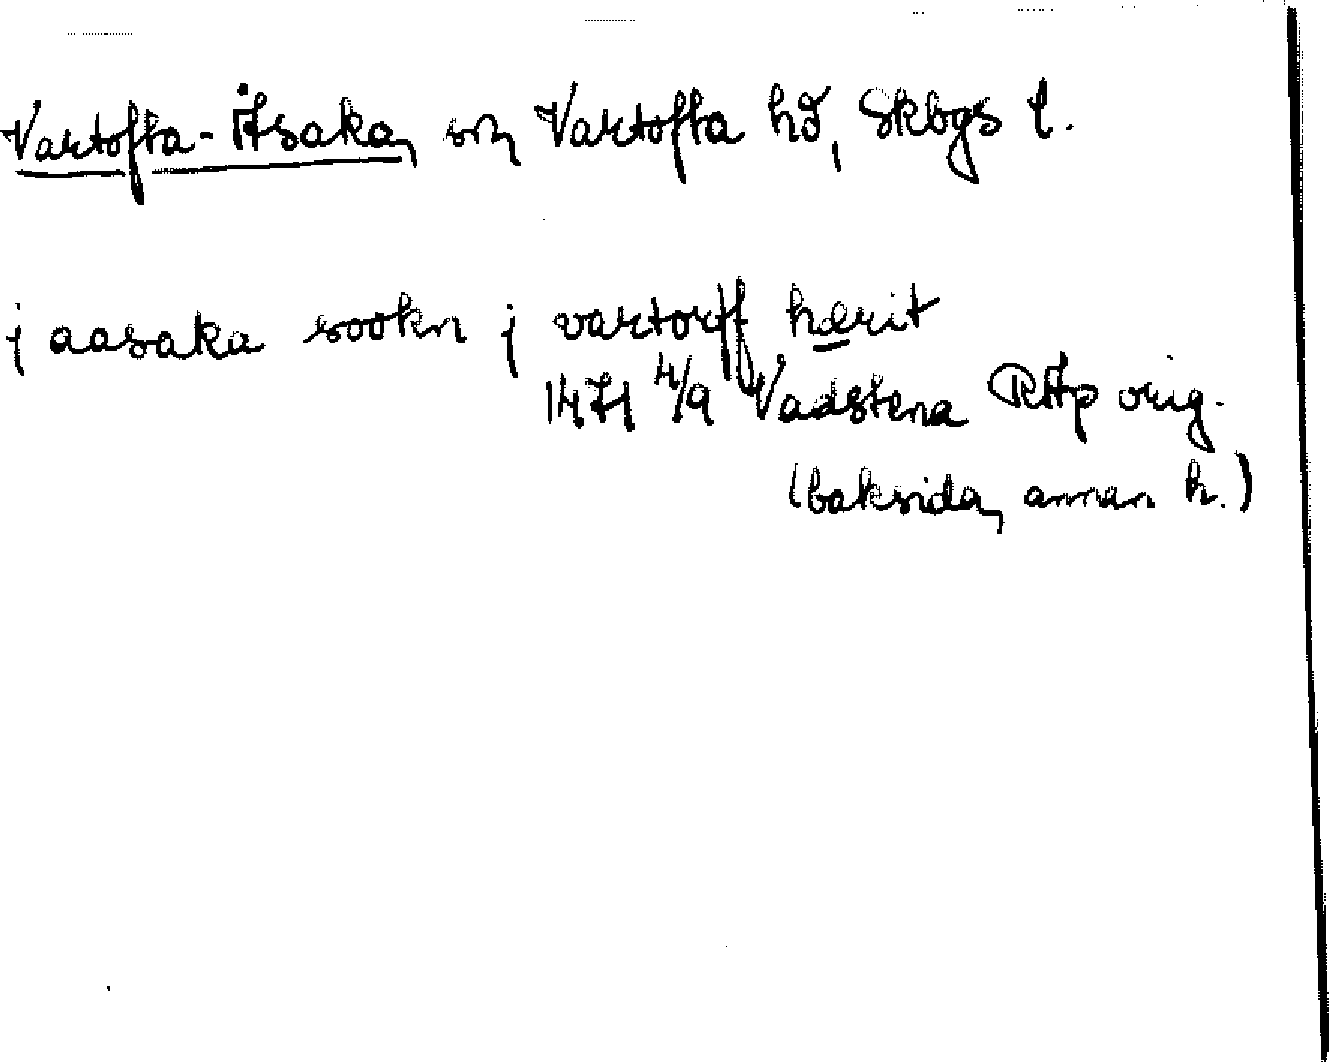 Vartofta-Åsaka, sn, Vartofta hd, Skbgs l.
j aasaka sookn j vartorff hærit
1471 4/9 Vadstena RAp orig.
(baksida, annan h.)